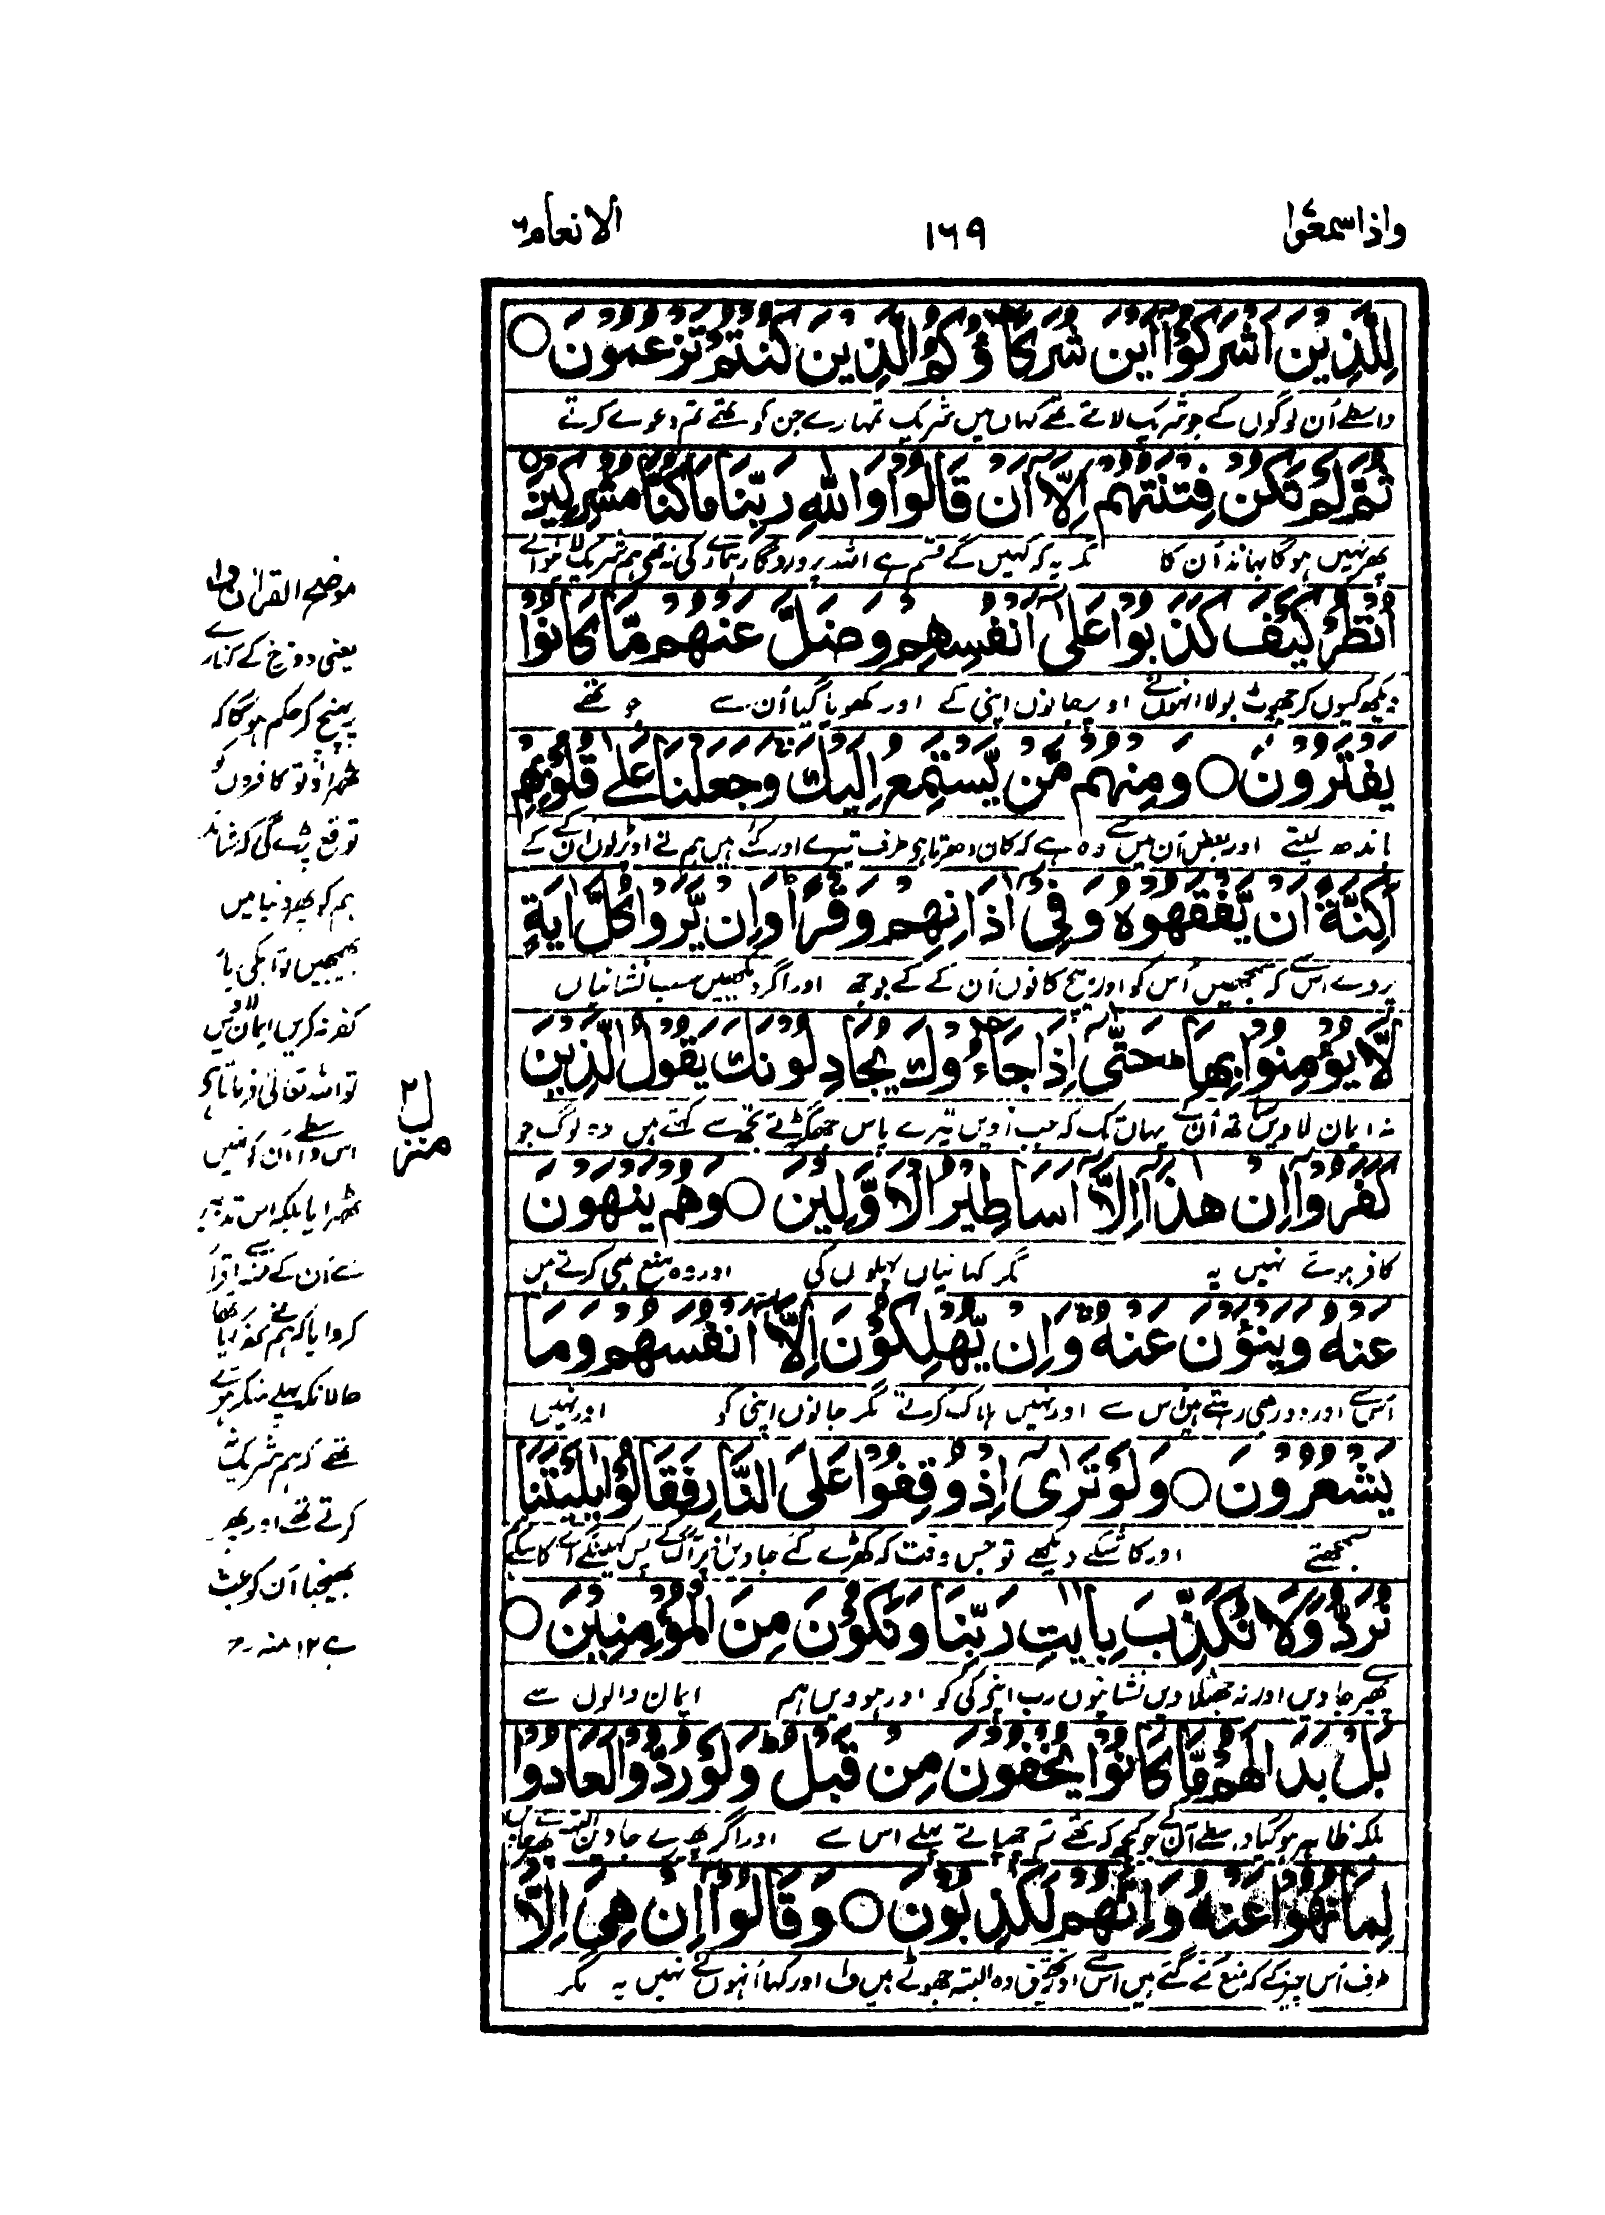 واذاسمعوا
١٦٩
الانعام٦
لِلَّذِيْنَ اَشْرَكُوْٓا اَيْنَ شُرَكَآؤُكُمُ الَّذِيْنَ كُنْتُمْ تَزْعُمُوْنَ ○
واسطے اُن لوگوں کے جو شریک لاتے تھے کہاں ہیں شریک تمہارے جن کو تھے تم دعوے کرتے
ثُمَّ لَمْ تَكُنْ فِتْنَتُهُمْ اِلَّآ اَنْ قَالُوْا وَاللّٰهِ رَبِّنَا مَا كُنَّا مُشْرِكِيْنَ ○
پھر نہیں ہوگا بہانہ اُن کا مگر یہ کہ کہیں گے قسم ہے اللہ پروردگار ہمارے کی نہ تھے ہم شریک لانیوالے
اُنْظُرْ كَيْفَ كَذَبُوْا عَلٰٓى اَنْفُسِهِمْ وَضَلَّ عَنْهُمْ مَّا كَانُوْا
دیکھ کیوں کر جھوٹ بولا انہوں نے اوپر جانوں اپنی کے اور کھویا گیا اُن سے جو تھے
يَفْتَرُوْنَ ○ وَمِنْهُمْ مَّنْ يَّسْتَمِعُ اِلَيْكَ ۚ وَجَعَلْنَا عَلٰى قُلُوْبِهِمْ
باندھ لیتے اور بعض اُن میں سے وہ ہے کہ کان دھرتا ہے طرف تیرے اور کئے ہیں ہم نے اوپر دلوں اُن کے
اَكِنَّةً اَنْ يَّفْقَهُوْهُ وَفِيْٓ اٰذَانِهِمْ وَقْرًا ؕ وَاِنْ يَّرَوْا كُلَّ اٰيَةٍ
پردے اس سے کہ سمجھیں اُس کو اور بیچ کانوں اُن کے کے بوجھ اور اگر دیکھیں سب نشانیاں
لَّا يُؤْمِنُوْا بِهَا ؕ حَتّٰٓى اِذَا جَآءُوْكَ يُجَادِلُوْنَكَ يَقُوْلُ الَّذِيْنَ
نہ ایمان لاویں ساتھ اُن کے یہاں تک کہ جب آویں تیرے پاس جھگڑتے تجھ سے کہتے ہیں وہ لوگ جو
كَفَرُوْٓا اِنْ هٰذَآ اِلَّآ اَسَاطِيْرُ الْاَوَّلِيْنَ ○ وَهُمْ يَنْهَوْنَ
کافر ہوئے نہیں یہ مگر کہانیاں پہلوں کی اور وہ منع بھی کرتے ہیں
عَنْهُ وَيَنْـَٔوْنَ عَنْهُ ۚ وَاِنْ يُّهْلِكُوْنَ اِلَّآ اَنْفُسَهُمْ وَمَا
اُس سے اور دور بھی رہتے ہیں اُس سے اور نہیں ہلاک کرتے مگر جانوں اپنی کو اور نہیں
يَشْعُرُوْنَ ○ وَلَوْ تَرٰٓى اِذْ وُقِفُوْا عَلَى النَّارِ فَقَالُوْا يٰلَيْتَنَا
سمجھتے اور کاشکے دیکھے تو جس وقت کہ کھڑے کئے جاویں اوپر آگ کے پس کہینگے اے کاشکے
نُرَدُّ وَلَا نُكَذِّبَ بِاٰيٰتِ رَبِّنَا وَنَكُوْنَ مِنَ الْمُؤْمِنِيْنَ ○
پھیرے جاویں اور نہ جھٹلاویں نشانیوں رب اپنے کی کو اور ہوویں ہم ایمان والوں سے
بَلْ بَدَا لَهُمْ مَّا كَانُوْا يُخْفُوْنَ مِنْ قَبْلُ ؕ وَلَوْ رُدُّوْا لَعَادُوْا
بلکہ ظاہر ہوگیا واسطے اُن کے جو کچھ کہ تھے چھپاتے پہلے اس سے اور اگر پھیرے جاویں البتہ پھر جاویں
لِمَا نُهُوْا عَنْهُ وَاِنَّهُمْ لَكٰذِبُوْنَ ○ وَقَالُوْٓا اِنْ هِيَ اِلَّا
طرف اُس چیز کے کہ منع کئے گئے ہیں اُس سے اور تحقیق وہ البتہ جھوٹے ہیں ف۱ اور کہا اُنہوں نے نہیں یہ مگر
موضح القرآن ف۱
یعنی دوزخ کے کنارے
پہنچ کر حکم ہوگا کہ
ٹھہراؤ تو کافروں کو
توقع پڑے گی کہ شاید
ہم کو پھر دنیا میں
بھیجیں تو ابکی بار
کفر نہ کریں ایمان لاویں
تو اللہ تعالیٰ فرماتا ہے
اس واسطے اُن کو نہیں
ٹھہرایا بلکہ اس تدبیر
سے اُن کے منہ سے اقرار
کروایا کہ ہم نے کفر کیا تھا
حالانکہ پہلے منکر ہوتے
تھے کہ ہم شریک نہ
کرتے تھے اور پھر
بھیجنا اُن کو عبث
ہے ١٢ منہ رح
منزل ٢